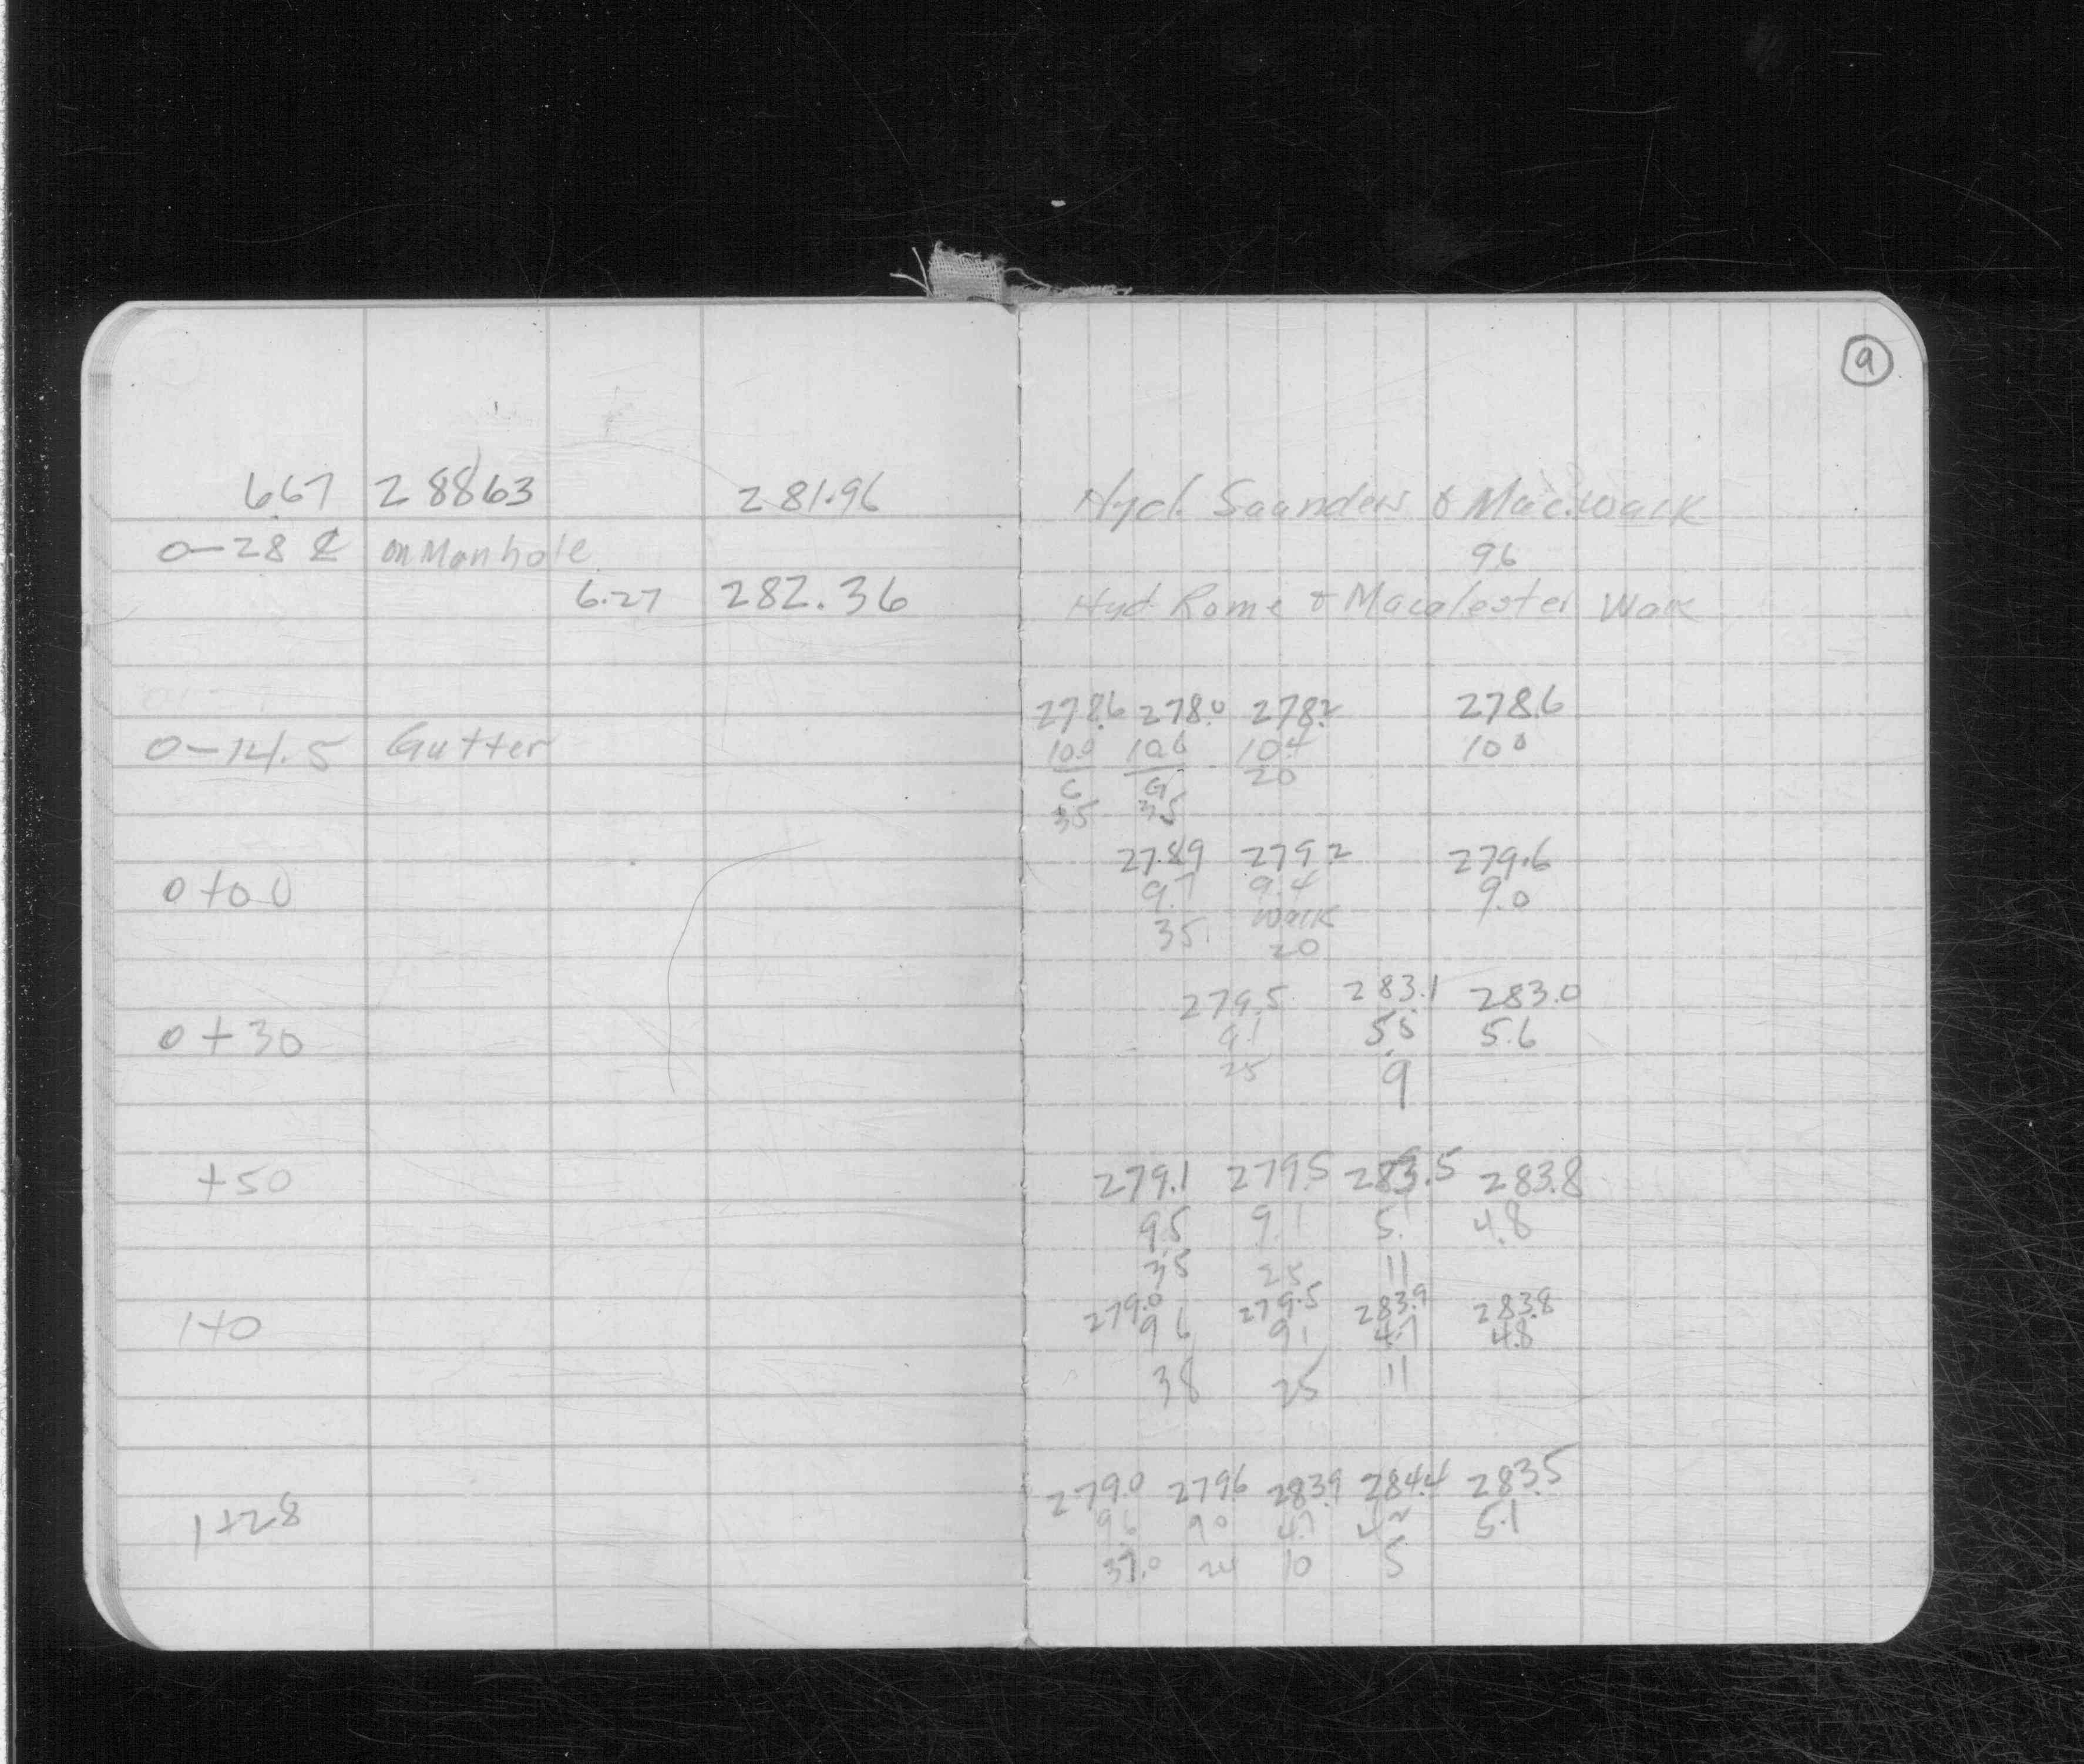 9
6.67 288.63 281.96 Hyd. Saunders & Mac. Walk
0-28 ⅊ on Manhole 96
6.27 282.36 Hyd Rome & Macalester Walk
278.6 278.0 278.2 278.6
0-14.5 Gutter 10.0 10.6 10.4 10.0
C G 20
35 35
278.9 279.2 279.6
0+00 9.7 9.4 9.0
35 Walk
20
279.5 283.1 283.0
0+30 9.1 5.5 5.6
25 9
+50 279.1 279.5 283.5 283.8
9.5 9.1 5.1 4.8
35 25 11
279.0 279.5 283.9 283.8
1+0 9.6 9.1 4.7 4.8
38 25 11
279.0 279.6 283.9 284.4 283.5
1+28 9.6 9.0 4.7 4.2 5.1
37.0 24 10 5